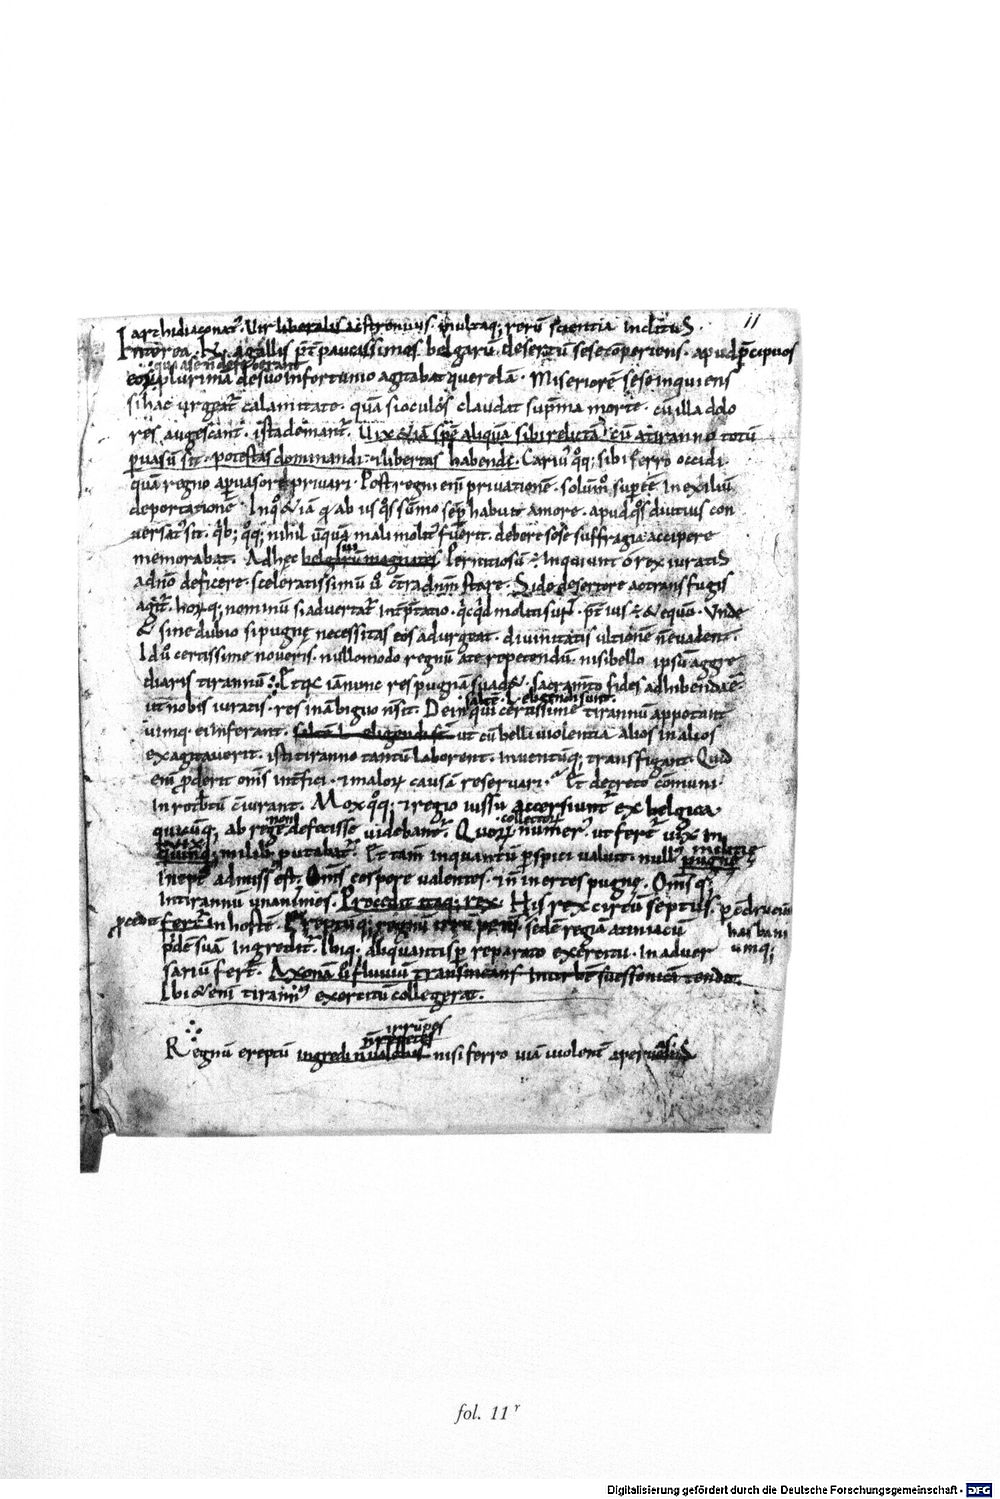 11
archidiaconatꝰ. Vir liberalis ac strenuus. multaq; rerū scientia inclitus.
Interea. K. a gallis pt̄ paucissimos belgarū desertū sese cōperiens. apud p̄cipuos
qui a se n̄ defecerant
eoꝝ plurima de suo infortunio agitabat querelā. Miseriorē sese inquiens
si hac urgeat̄ calamitate. quā si oculos claudat sup̄ma morte. cū illa dolo
res augescant. ista domant̄. Vix & iā spē aliquā sibi relictā. cū a tiranno totū
p̄uasū sit. potestas dominandi. libertas habendi. Cariꝰ q̊q; sibi ferro occidi.
quā regno a p̄uasore privari. Post regni em̄ privationē. solūm̊ sup̄ee in exiliū
deportationē. Inq̊ & iā ab us q̊s sūmo semp̄ habuit amore. apud q̊s diutius con
versatꝰ sit. qb; q̊q; nihil ūquā mali molitꝰ fuerit. debere sese suffragia accipere
memorabat. Ad hęc belgarū magnates Pernitiosū ÷ inquiunt o rex iuratis
a dn̄o deficere. sceleratissimū ū cōtra dnm̄ stare. Si de desertore ac transfugis
agit̄. horq; nominū si advertat̄ intp̄tatio. qcqd molituri sunt. pt̄ ius ÷ & equū. Unde
& sine dubio si pugnę necessitas eos adurgeat. divinitatis ultionē n̄ evadent.
Id ū certissime noveris. nullo modo regnū a te repetendū. nisi bello ipsū aggre
diaris tirannū. Et qa iā nunc res pugnā suadet. sacram̄to fides adhibenda ē
saltē. L. eligendi sunt.
ut nobis iuratis. res in ābiguo n̄ sit. Dein qui certissime tirannū appetant
vimq. ei inferant. saltē L eligendi st̄ ut cū belli violentia alios in alios
exagitaverit. isti tiranno tantū laborent. inventūq; transfigant. Quid
em̄ proderit om̄s int̄fici. & maloꝝ causā reservari. Et decreto cōmuni.
in rotb̄tū cōiurant. Mox q̊q; & regio iussu accersiunt̄ ex belgica
quicūq; ab rege non defecisse videbant̄. Quoꝝ collectoꝝ numerꝰ ut fert̄ vix in
quinq; milib; putabat̄. Et tam̄ inquantū p̄spici valuit. nullꝰ militię
pugnę
ineptꝰ admissꝰ est. Om̄s corpore valentes. & n̄ inertes pugnę. Om̄s q;
in tirannū unanimes. Procedit itaq; rex. His rex circū septus. p̄ condruciū
hasbaniumq;
procedit fert̄ in hostē. Ereptūq; regnū iterū petens. sedē regiā atiniacū
p̄de suā ingredit̄. Ibiq. aliquantisp̄ reparato exercitu. in adver
sariū fert̄. Axonā ū fluviū transmeans in urbē suessonicā tendit.
Ibi & em̄ tirannꝰ exercitū collegerat.
Regnū ereptū ingredi n̄ valebat nisi ferro viā violent̄ aperuisset
irrūpes
fol. 11ʳ
Digitalisierung gefördert durch die Deutsche Forschungsgemeinschaft - DFG